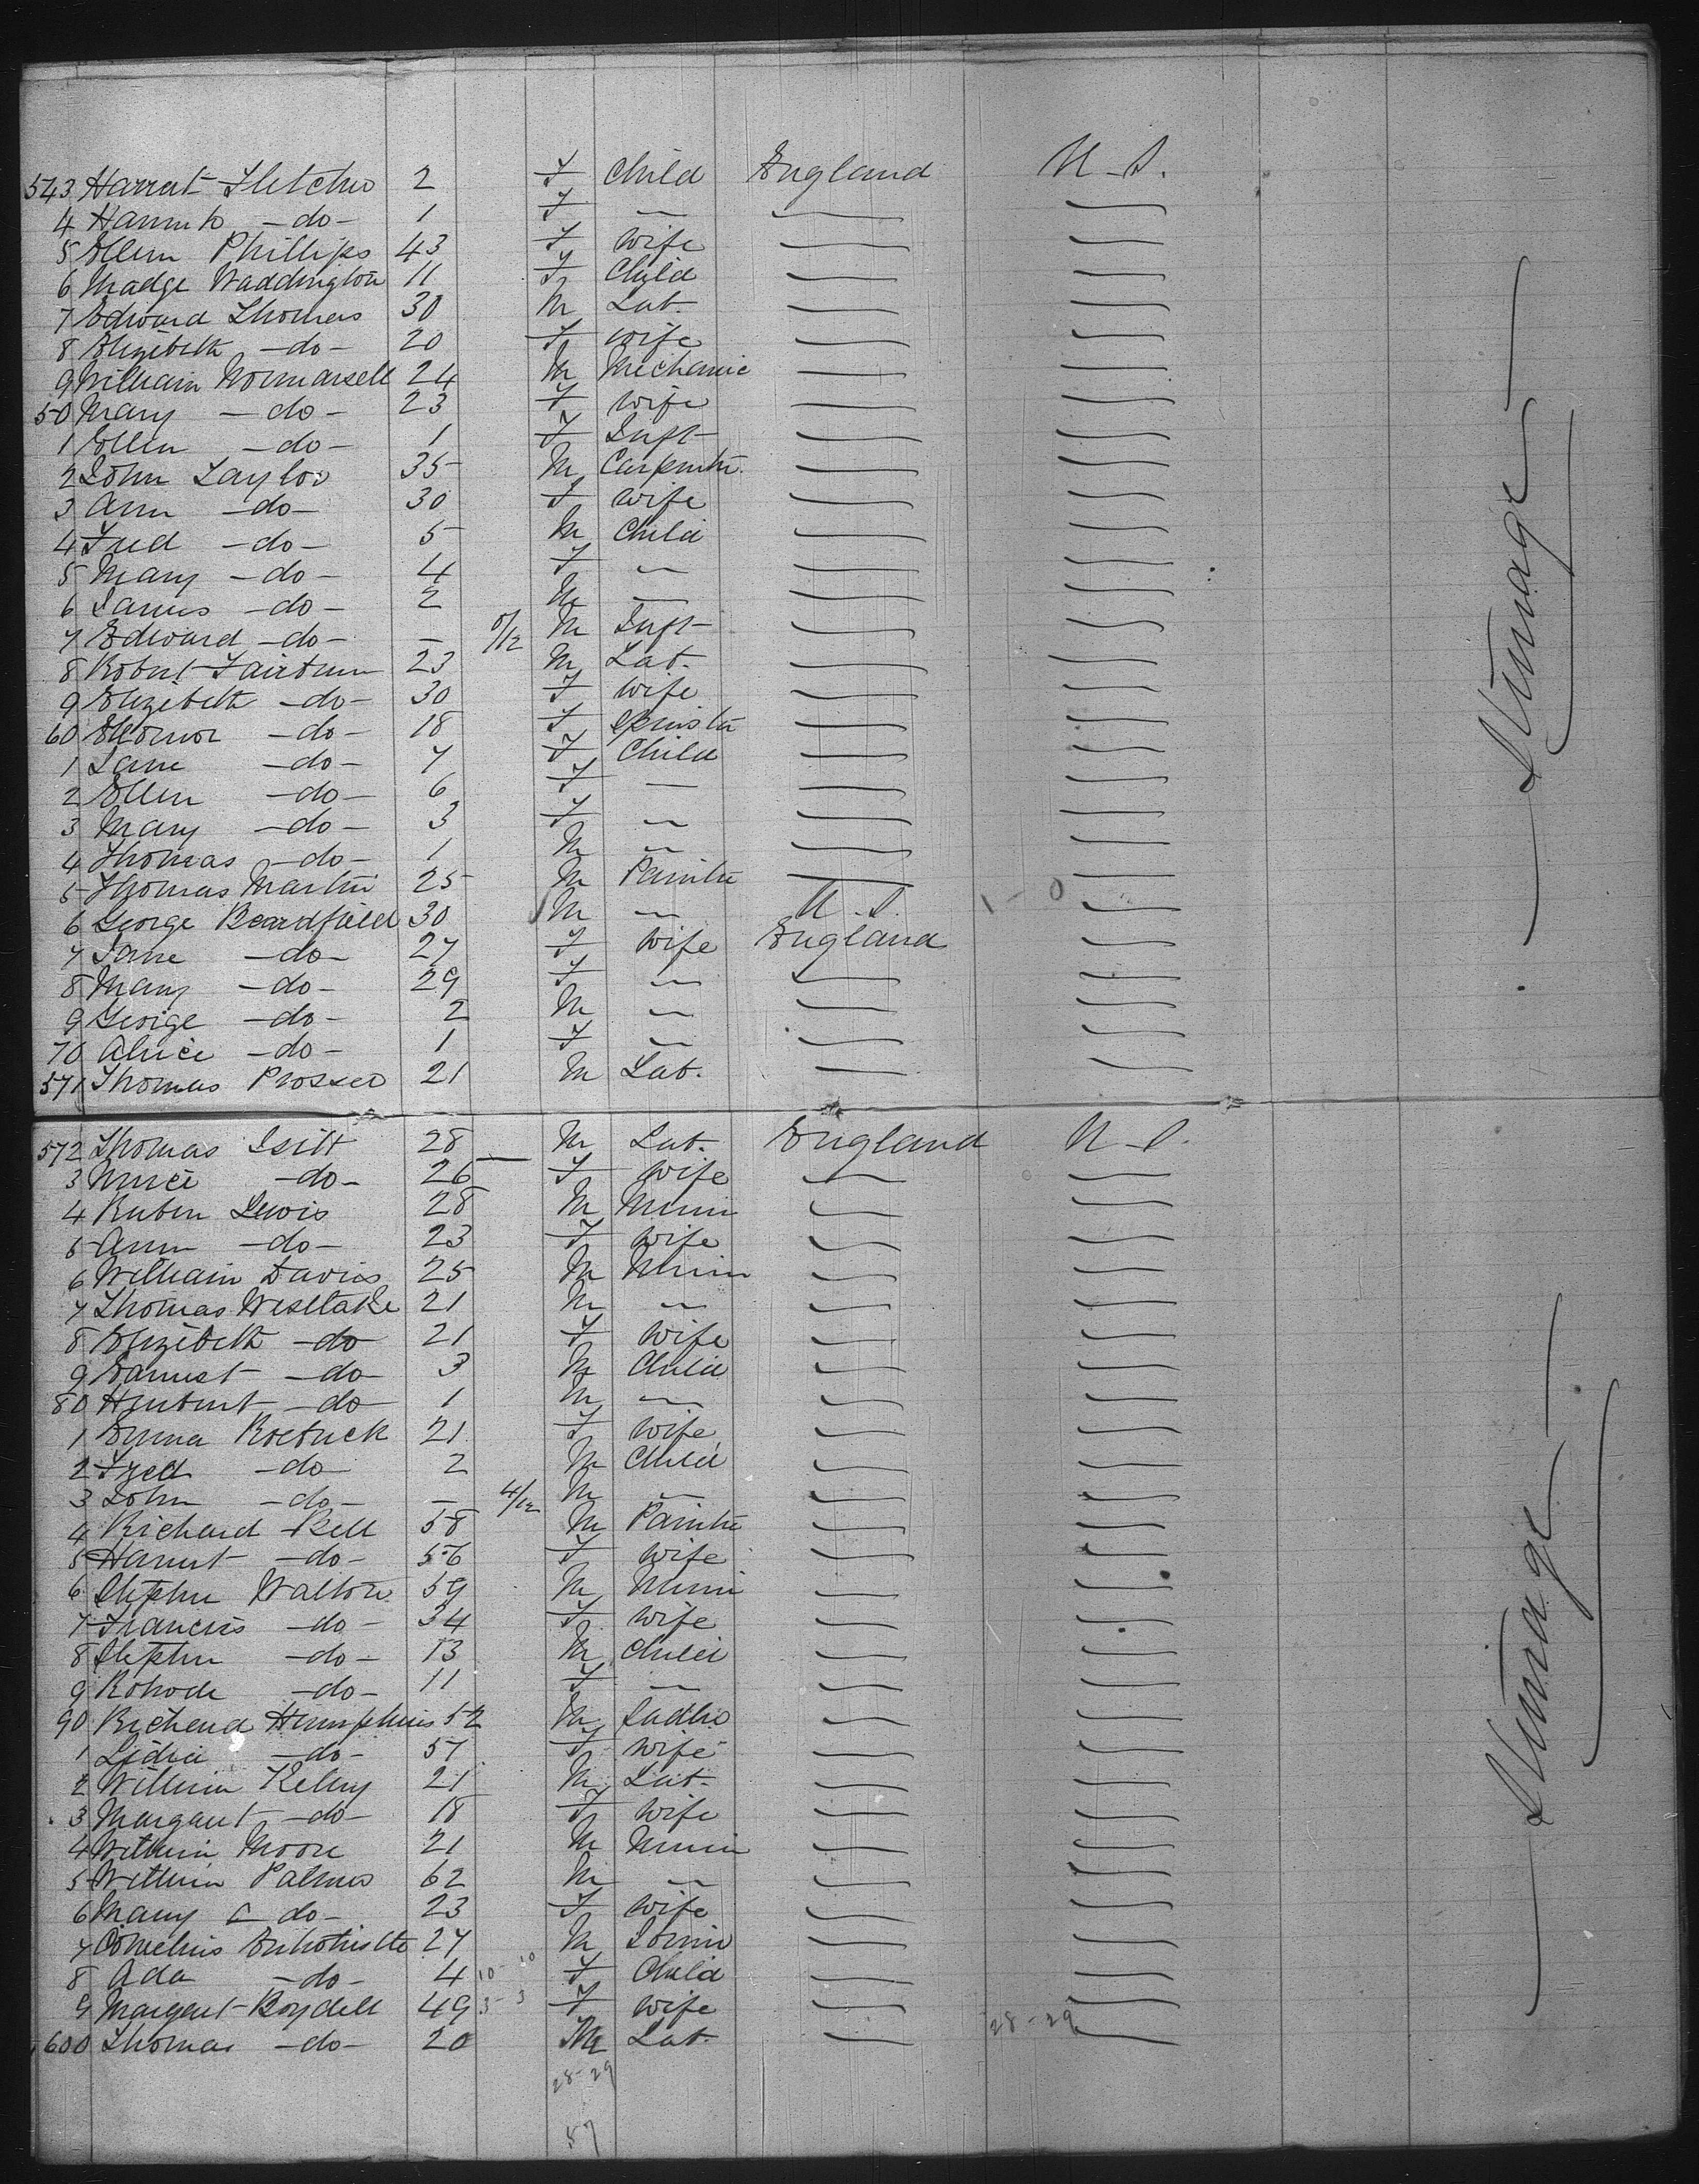 543 Harriet Fletcher 2 F Child England U.S.
4 Hannah -do- 1 F — — —
5 Ellen Phillips 43 F Wife — —
6 Madge Waddington 11 F Child — —
7 Edward Thomas 30 M Lab. — —
8 Elizabeth -do- 20 F Wife — —
9 William 24 M Mechanic — —
50 Mary -do- 23 F Wife — —
1 Ellen -do- 1 F Inft — —
2 John Taylor 35 M Carpenter — —
3 Ann -do- 30 F Wife — —
4 Fred -do- 5 M Child — —
5 Mary -do- 4 F — — —
6 James -do- 2 M — — —
7 Edward -do- — /12 M Inft — —
8 Robert 23 M Lab. — —
9 Elizabeth -do- 30 F Wife — —
60 Elleonor -do- 18 F Spinster — —
1 Jane -do- 7 F Child — —
2 Ellen -do- 6 F — — —
3 Mary -do- 3 F — — —
4 Thomas -do- 1 M — — —
5 Thomas Martin 25 M Painter — —
6 George Beardfield 30 M — U.S. 1-0 —
7 Jane -do- 27 F Wife England —
8 Mary -do- 29 F — — —
9 George -do- 2 M — — —
70 Alice -do- 1 F — — —
571 Thomas Prosser 21 M Lab. — —
Steerage
572 Thomas Isitt 28 M Lab. England U.S.
3 -do- 26 F Wife — —
4 Ruben Lewis 28 M Miner — —
5 Ann -do- 23 F Wife — —
6 William Davies 25 M Miner — —
7 Thomas Westlake 21 M — — —
8 Elizabeth -do- 21 F Wife — —
9 Earnest -do- 3 M Child — —
80 Herbert -do- 1 M — — —
1 Emma Roebuck 21 F Wife — —
2 Fred -do- 2 M Child — —
3 John -do- — 4/12 M — — —
4 Richard Bell 58 M Painter — —
5 Harriet -do- 56 F Wife — —
6 Stephen Walton 59 M Miner — —
7 Francis -do- 34 F Wife — —
8 Stephen -do- 13 M Child — —
9 Rohode -do- 11 F — — —
90 Richard Humphries 52 M Sadler — —
1 Lidia -do- 57 F Wife — —
2 William Kelley 21 M Lab. — —
3 Margaret -do- 18 F Wife — —
4 William Moore 21 M Miner — —
5 William Palmer 62 M — — —
6 Mary -do- 23 F Wife — —
7 Cornelius 27 M Joiner — —
8 Ada -do- 4 10-10 F Child — —
9 Margaret Boydell 49 3-3 F Wife — —
600 Thomas -do- 20 M Lab. — 28-29 —
28-29
57
Steerage